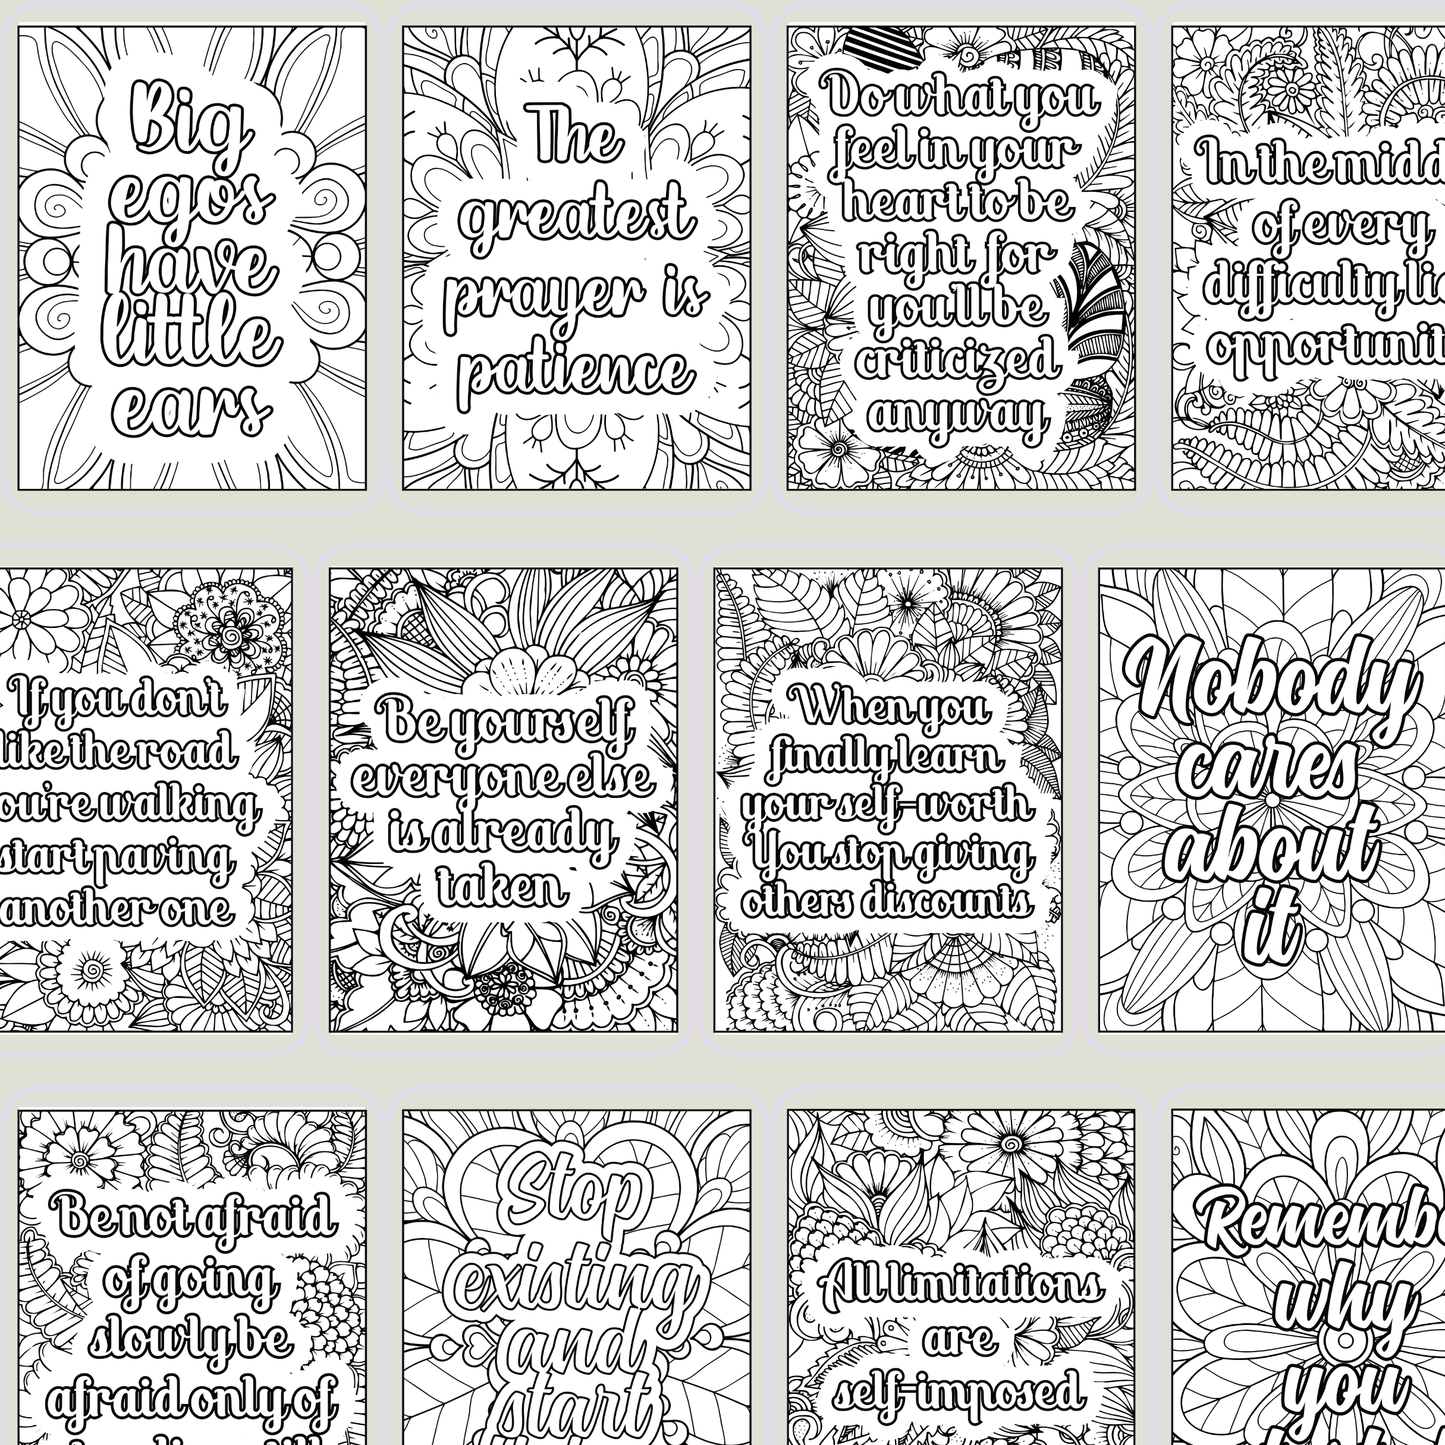 Big
egos
have
little
ears
The
greatest
prayer is
patience
Do what you
feel in your
heart to be
right for
you'll be
criticized
anyway
In the midd
of every
difficulty li
opportunit
If you don't
like the road
ou're walking
start paving
another one
Be yourself
everyone else
is already
taken
When you
finally learn
your self-worth
You stop giving
others discounts
Nobody
cares
about
it
Be not afraid
of going
slowly be
afraid only of
Stop
existing
and
start
All limitations
are
self-imposed
Rememb
why
you